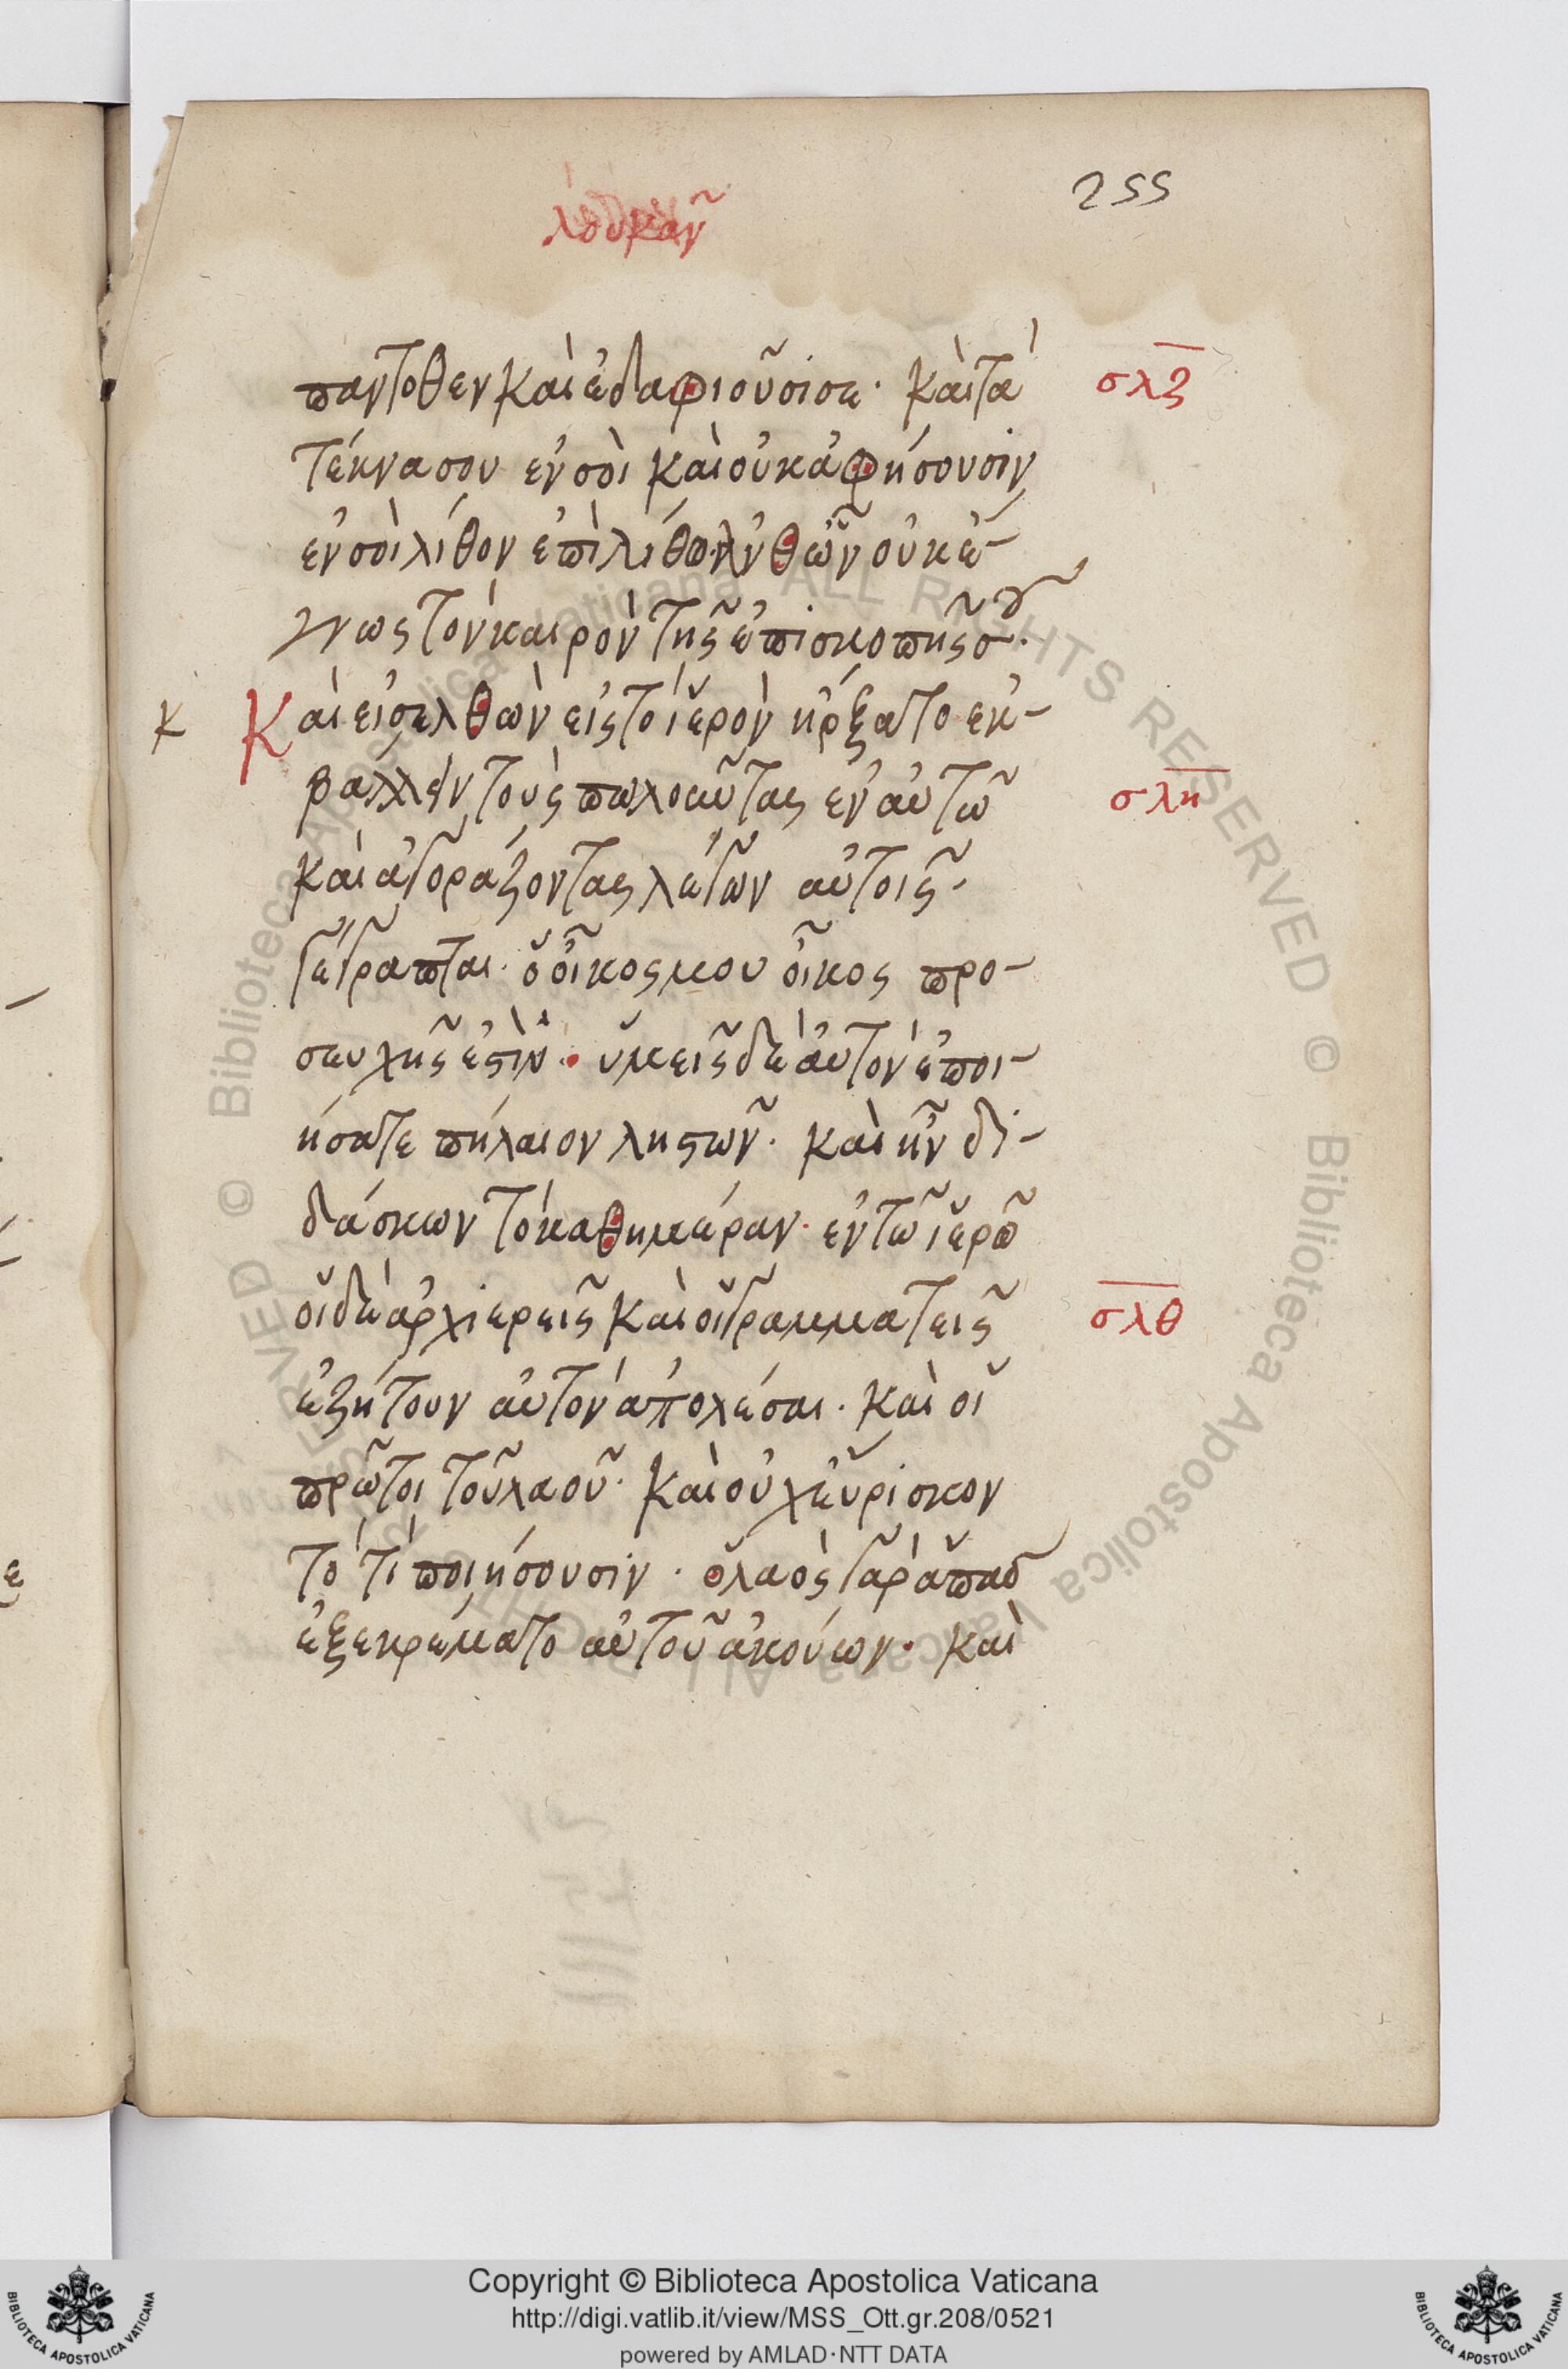 λουκαν
255
παντοθεν και ἐδαφιοῦσι σε· και τὰ
σλζ
τέκνα σου ἐν σοὶ και οὐκ ἀφήσουσιν
ἐν σοὶ λίθον ἐπὶ λίθον ἀνθῶν οὐκ ἔ-
γνως τὸν καιρὸν τῆς ἐπισκοπῆς σου·
κ
Και εἰσελθὼν εἰς τὸ ἱερὸν ἤρξατο ἐκ-
βάλλειν τοὺς πωλοῦντας ἐν αὐτῶ
σλη
και ἀγοράζοντας λέγων αὐτοῖς·
γέγραπται· ὁ οἶκος μου οἶκος προ-
σευχῆς ἐστὶν· ὑμεῖς δὲ αὐτὸν ἐποι-
ήσατε πήλαιον ληστῶν· και ἦν δι-
δάσκων τὸ καθημέραν· ἐν τῶ ἱερῶ
οἱ δὲ ἀρχιερεῖς και οἱ γραμματεῖς
σλθ
ἐζήτουν αὐτὸν ἀπολέσαι· και οἱ
πρῶτοι τοῦ λαοῦ· και οὐχ εὕρισκον
τὸ τί ποιήσουσιν· ὁ λαὸς γὰρ ἅπας
ἐξεκρέματο αὐτοῦ ἀκούων· και
Copyright © Biblioteca Apostolica Vaticana
http://digi.vatlib.it/view/MSS_Ott.gr.208/0521
powered by AMLAD·NTT DATA